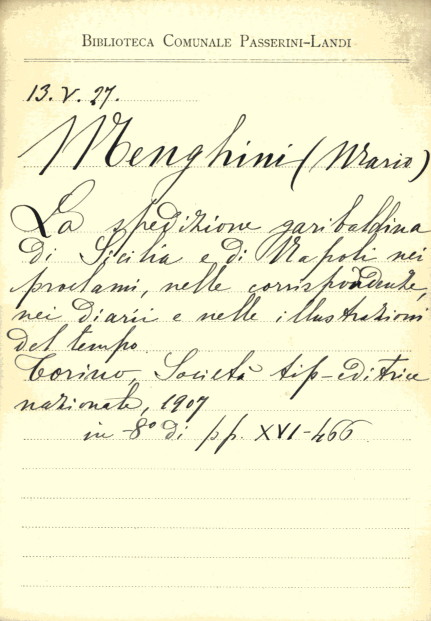 BIBLIOTECA COMUNALE PASSERINI-LANDI
13. V. 27.
Menghini (Mario)
La spedizione garibaldina
di Sicilia e di Napoli nei
proclami, nelle corrispondente,
nei diarii e nelle illustrazioni
del tempo
Torino, Società tip-editrice
nazionale, 1907
in-8° di pp. XVI-466